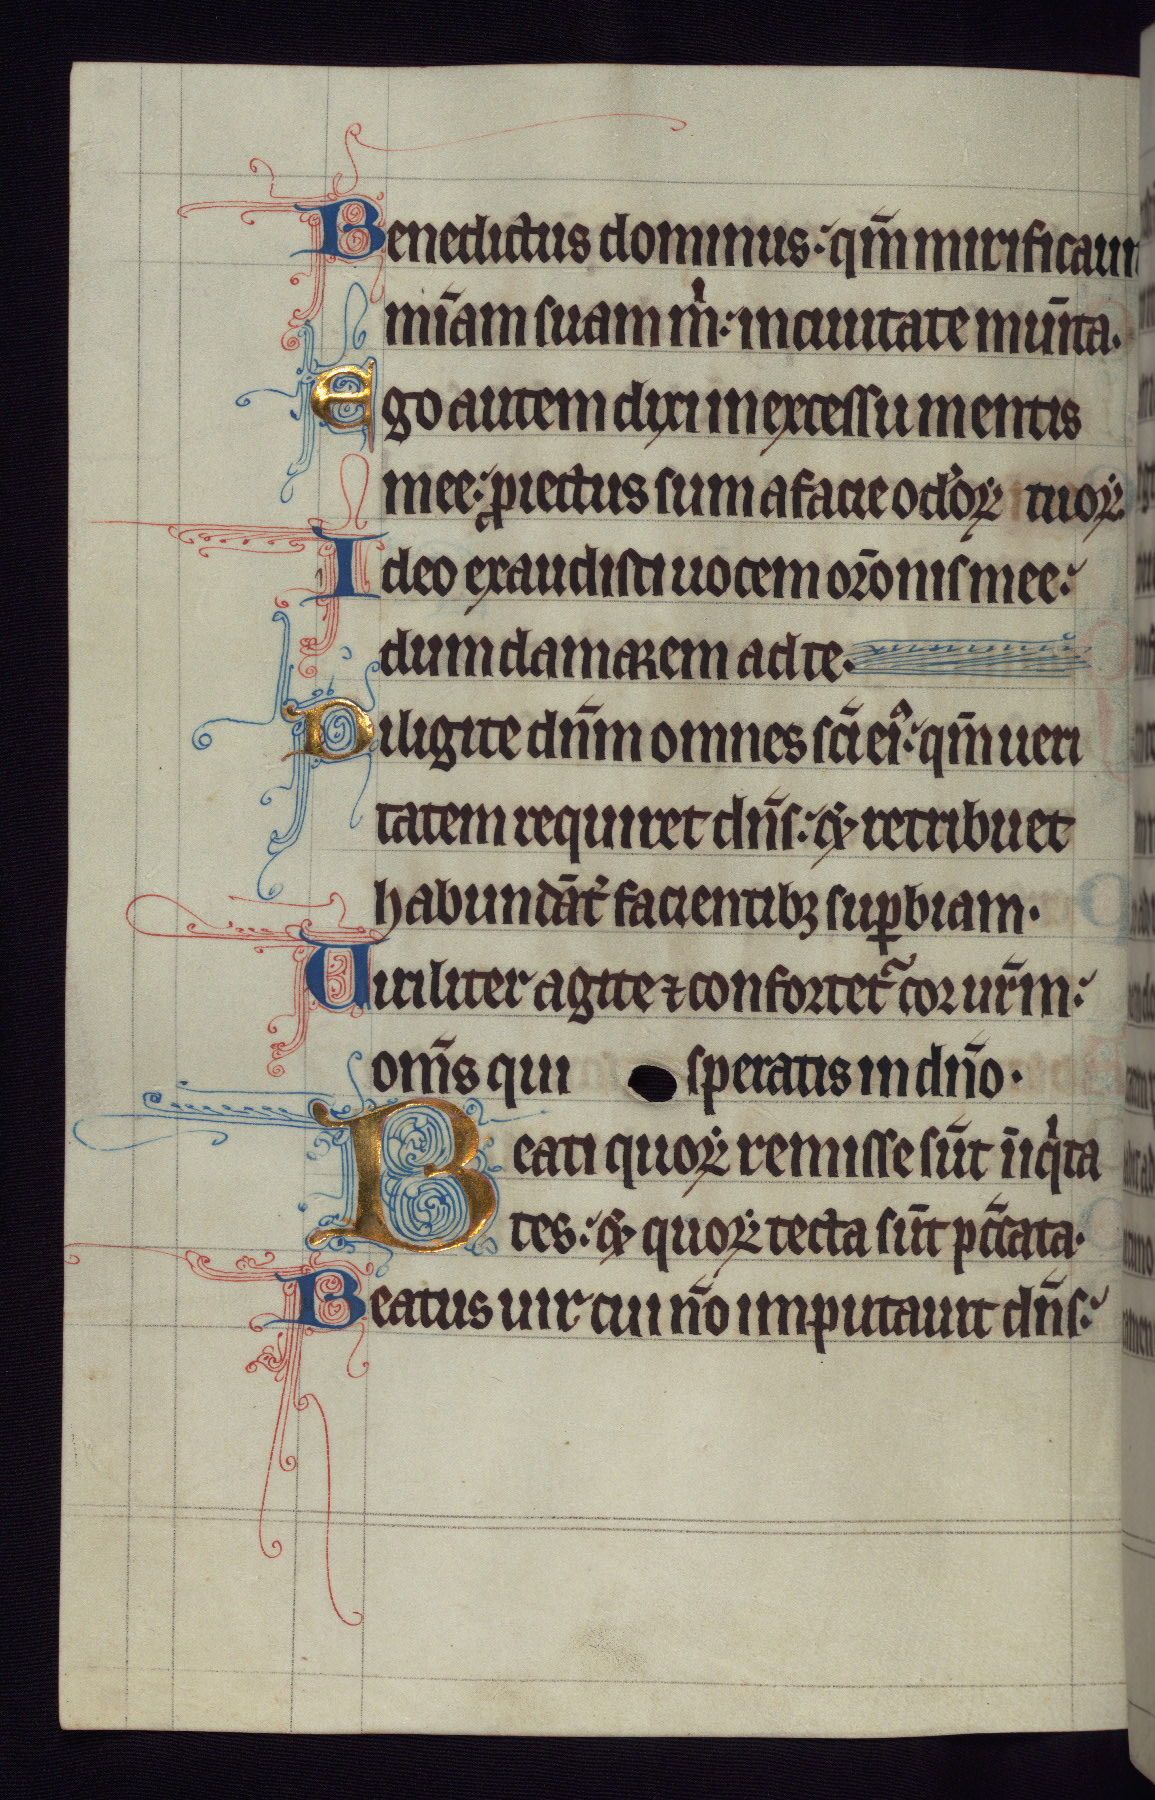 Benedictus dominus: qm̄ mirificauit
mīam suam m̄i: in ciuitate mūita.
Ego autem dixi in excessu mentis
mee: ꝓiectus sum a facie oc̄loꝝ tuoꝝ.
Ideo exaudisti uocem or̄onis mee:
dum clamarem ad te.
Diligite dn̄m omnes sc̄i eiꝰ: qm̄ ueri
tatem requiret dn̄s: ⁊ retribuet
habundāt᷑ facientibꝫ suꝑbiam.
Uiriliter agite ⁊ confortet᷑ cor ur̄m:
om̄s qui speratis in dn̄o.
Beati quoꝝ remisse sūt īiqͥta
tes: ⁊ quoꝝ tecta sūt pc̄cata.
Beatus uir cui nō imputauit dn̄s: